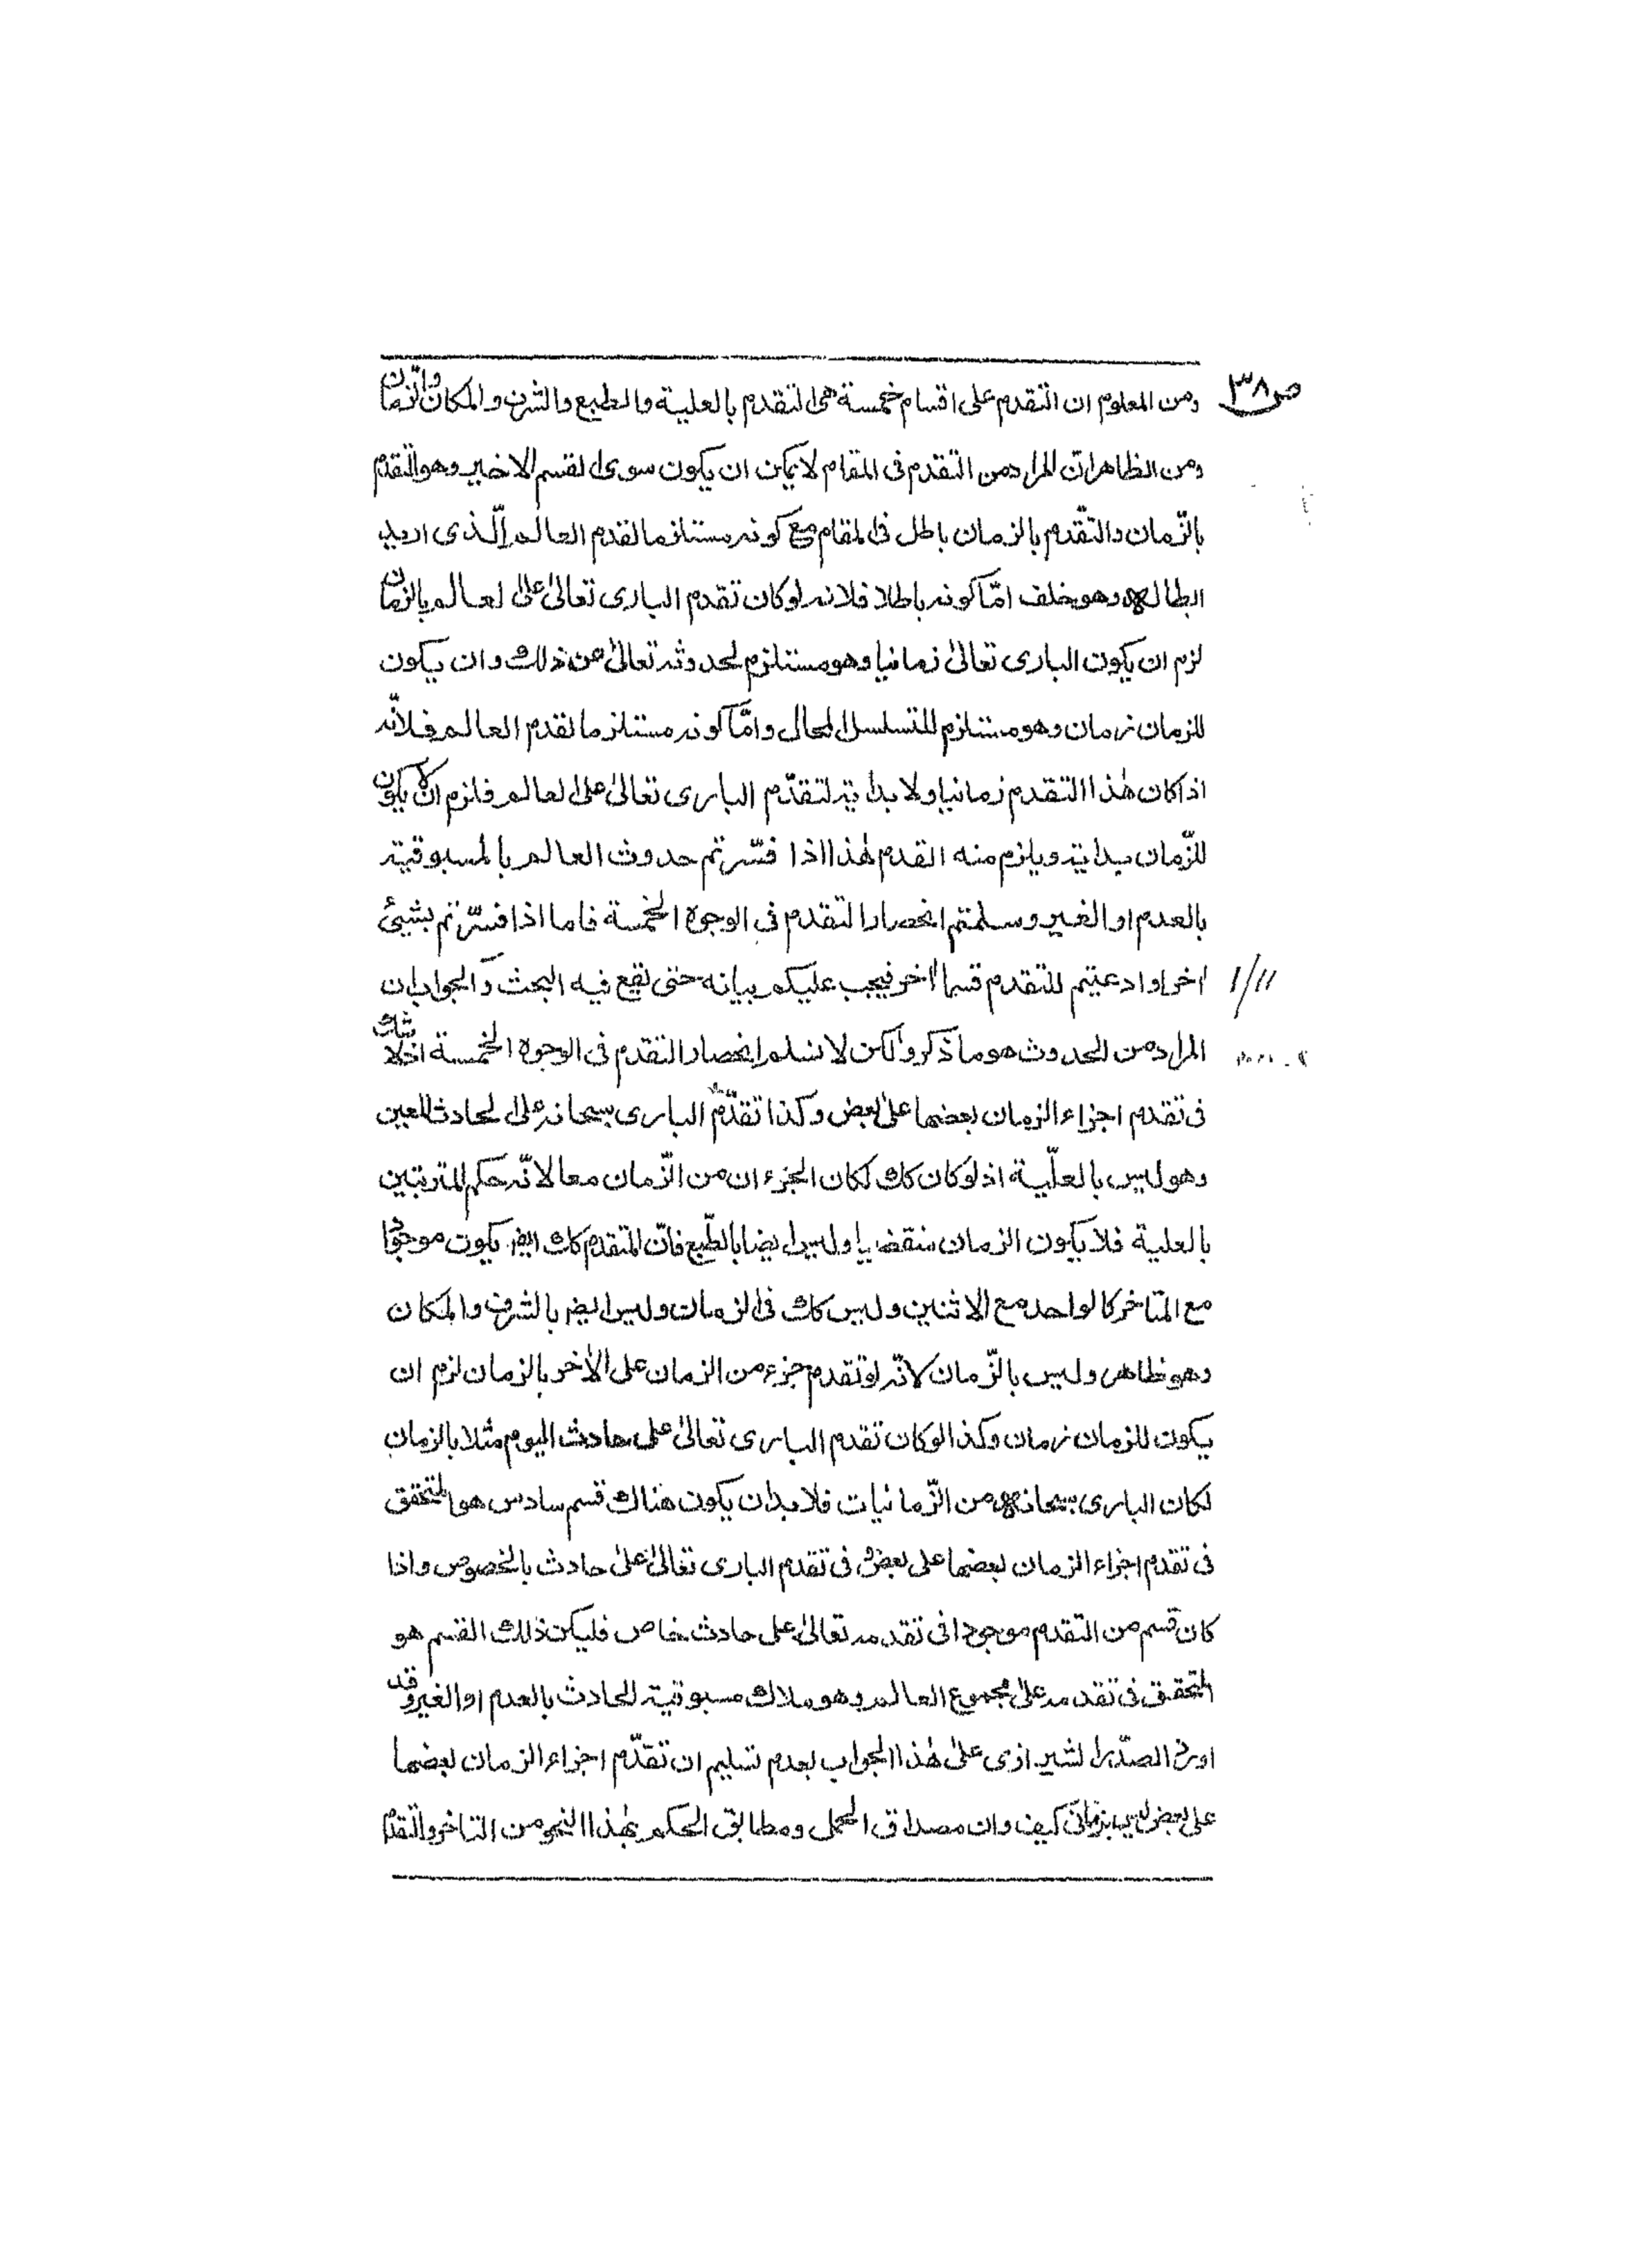 ص٣٨
ومن المعلوم ان التقدم على اقسام خمسة هى التقدم بالعلية والطبع والشرف والمكان والزمان
ومن الظاهر ان المراد من التقدم فى المقام لا يمكن ان يكون سوى القسم الاخير وهو التقدم
بالزّمان والتّقدم بالزمان باطل فى المقام مع كونه مستلزما لقدم العالم الّذى اريد
ابطاله وهو خلف امّا كونه باطلا فلانه لو كان تقدم البارى تعالىٰ على العالم بالزمان
لزم ان يكون البارى تعالىٰ زمانيا وهو مستلزم لحدوثه تعالىٰ عن ذلك وان يكون
للزمان زمان وهو مستلزم للتسلسل المحال وامّا كونه مستلزما لقدم العالم فلانّه
اذا كان هٰذا التقدم زمانيا ولا بداية لتقدّم البارى تعالىٰ على العالم فلزم ان لا يكون
للزّمان بداية ويلزم منه القدم هٰذا اذا فسّرتم حدوث العالم بالمسبوقية
بالعدم او الغير وسلمتم انحصار التقدم فى الوجوه الخمسة فاما اذا فسّرتم بشيئ
اخر او ادعيتم للتقدم قسما اخر فيجب عليكم بيانه حتى يقع فيه البحث والجواب ان
١/١١
المراد من الحدوث هو ما ذكروا لكن لا نسلم انحصار التقدم فى الوجوه الخمسة اذ لا شك
فى تقدم اجزاء الزمان بعضها على بعض وكذا تقدّم البارى سبحانه على الحادث المعين
وهو ليس بالعلّية اذ لو كان كك لكان الجزءان من الزّمان معا لانّه حكم المترتبين
بالعلية فلا يكون الزمان منقضيا وليس ايضا بالطّبع فانّ المتقدم كك ايض يكون موجودا
مع المتاخر كالواحد مع الاثنين وليس كك فى الزمان وليس ايض بالشرف والمكان
وهو ظاهر وليس بالزّمان لانّه لو تقدم جزء من الزمان على الاٰخر بالزمان لزم ان
يكون للزمان زمان وكذا لو كان تقدم البارى تعالىٰ على حادث اليوم مثلا بالزمان
لكان البارى سبحانه من الزّمانيات فلا بد ان يكون هناك قسم سادس هو المتحقق
فى تقدم اجزاء الزمان بعضها على بعض و فى تقدم البارى تعالىٰ علىٰ حادث بالخصوص واذا
كان قسم من التقدم موجودا فى تقدمه تعالىٰ على حادث خاص فليكن ذلك القسم هو
المتحقق فى تقدمه علىٰ مجموع العالم وهو ملاك مسبوقية الحادث بالعدم او الغير وقد
اورد الصّدر الشيرازى علىٰ هٰذا الجواب بعدم تسليم ان تقدّم اجزاء الزمان بعضها
على بعض ليس بزمانى كيف وان مصداق الحمل ومطابق الحكم بهٰذا النحو من التاخر والتقدم